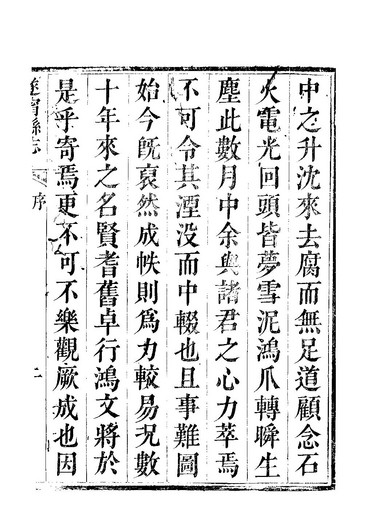 中之升沈來去腐而無足道顧念石
火電光回頭皆夢雪泥鴻爪轉瞬生
塵此數月中余與諸君之心力萃焉
不可令其湮没而中輟也且事難圖
始今旣裒然成帙則爲力較易況數
十年來之名賢耆舊卓行鴻文將於
是乎寄焉更不可不樂觀厥成也因
遂寧縣志
序
二